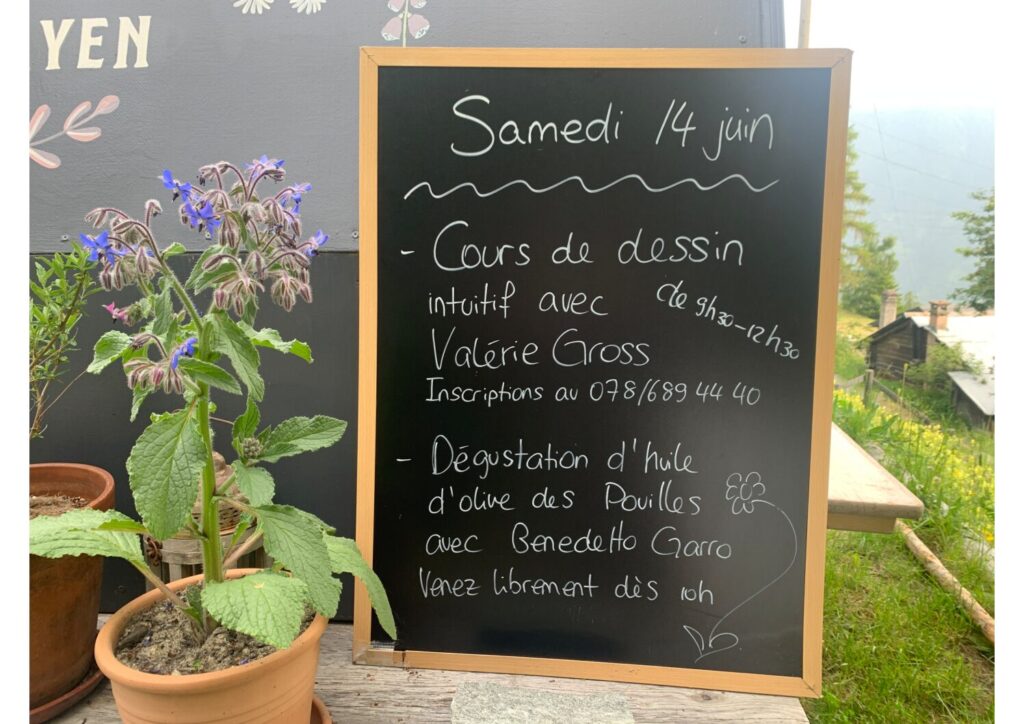 YEN
Samedi 14 juin
- Cours de dessin
intuitif avec
de 9h30-12h30
Valérie Gross
Inscriptions au 078/689 44 40
- Dégustation d'huile
d'olive des Pouilles
avec Benedetto Garro
Venez librement dès 10h